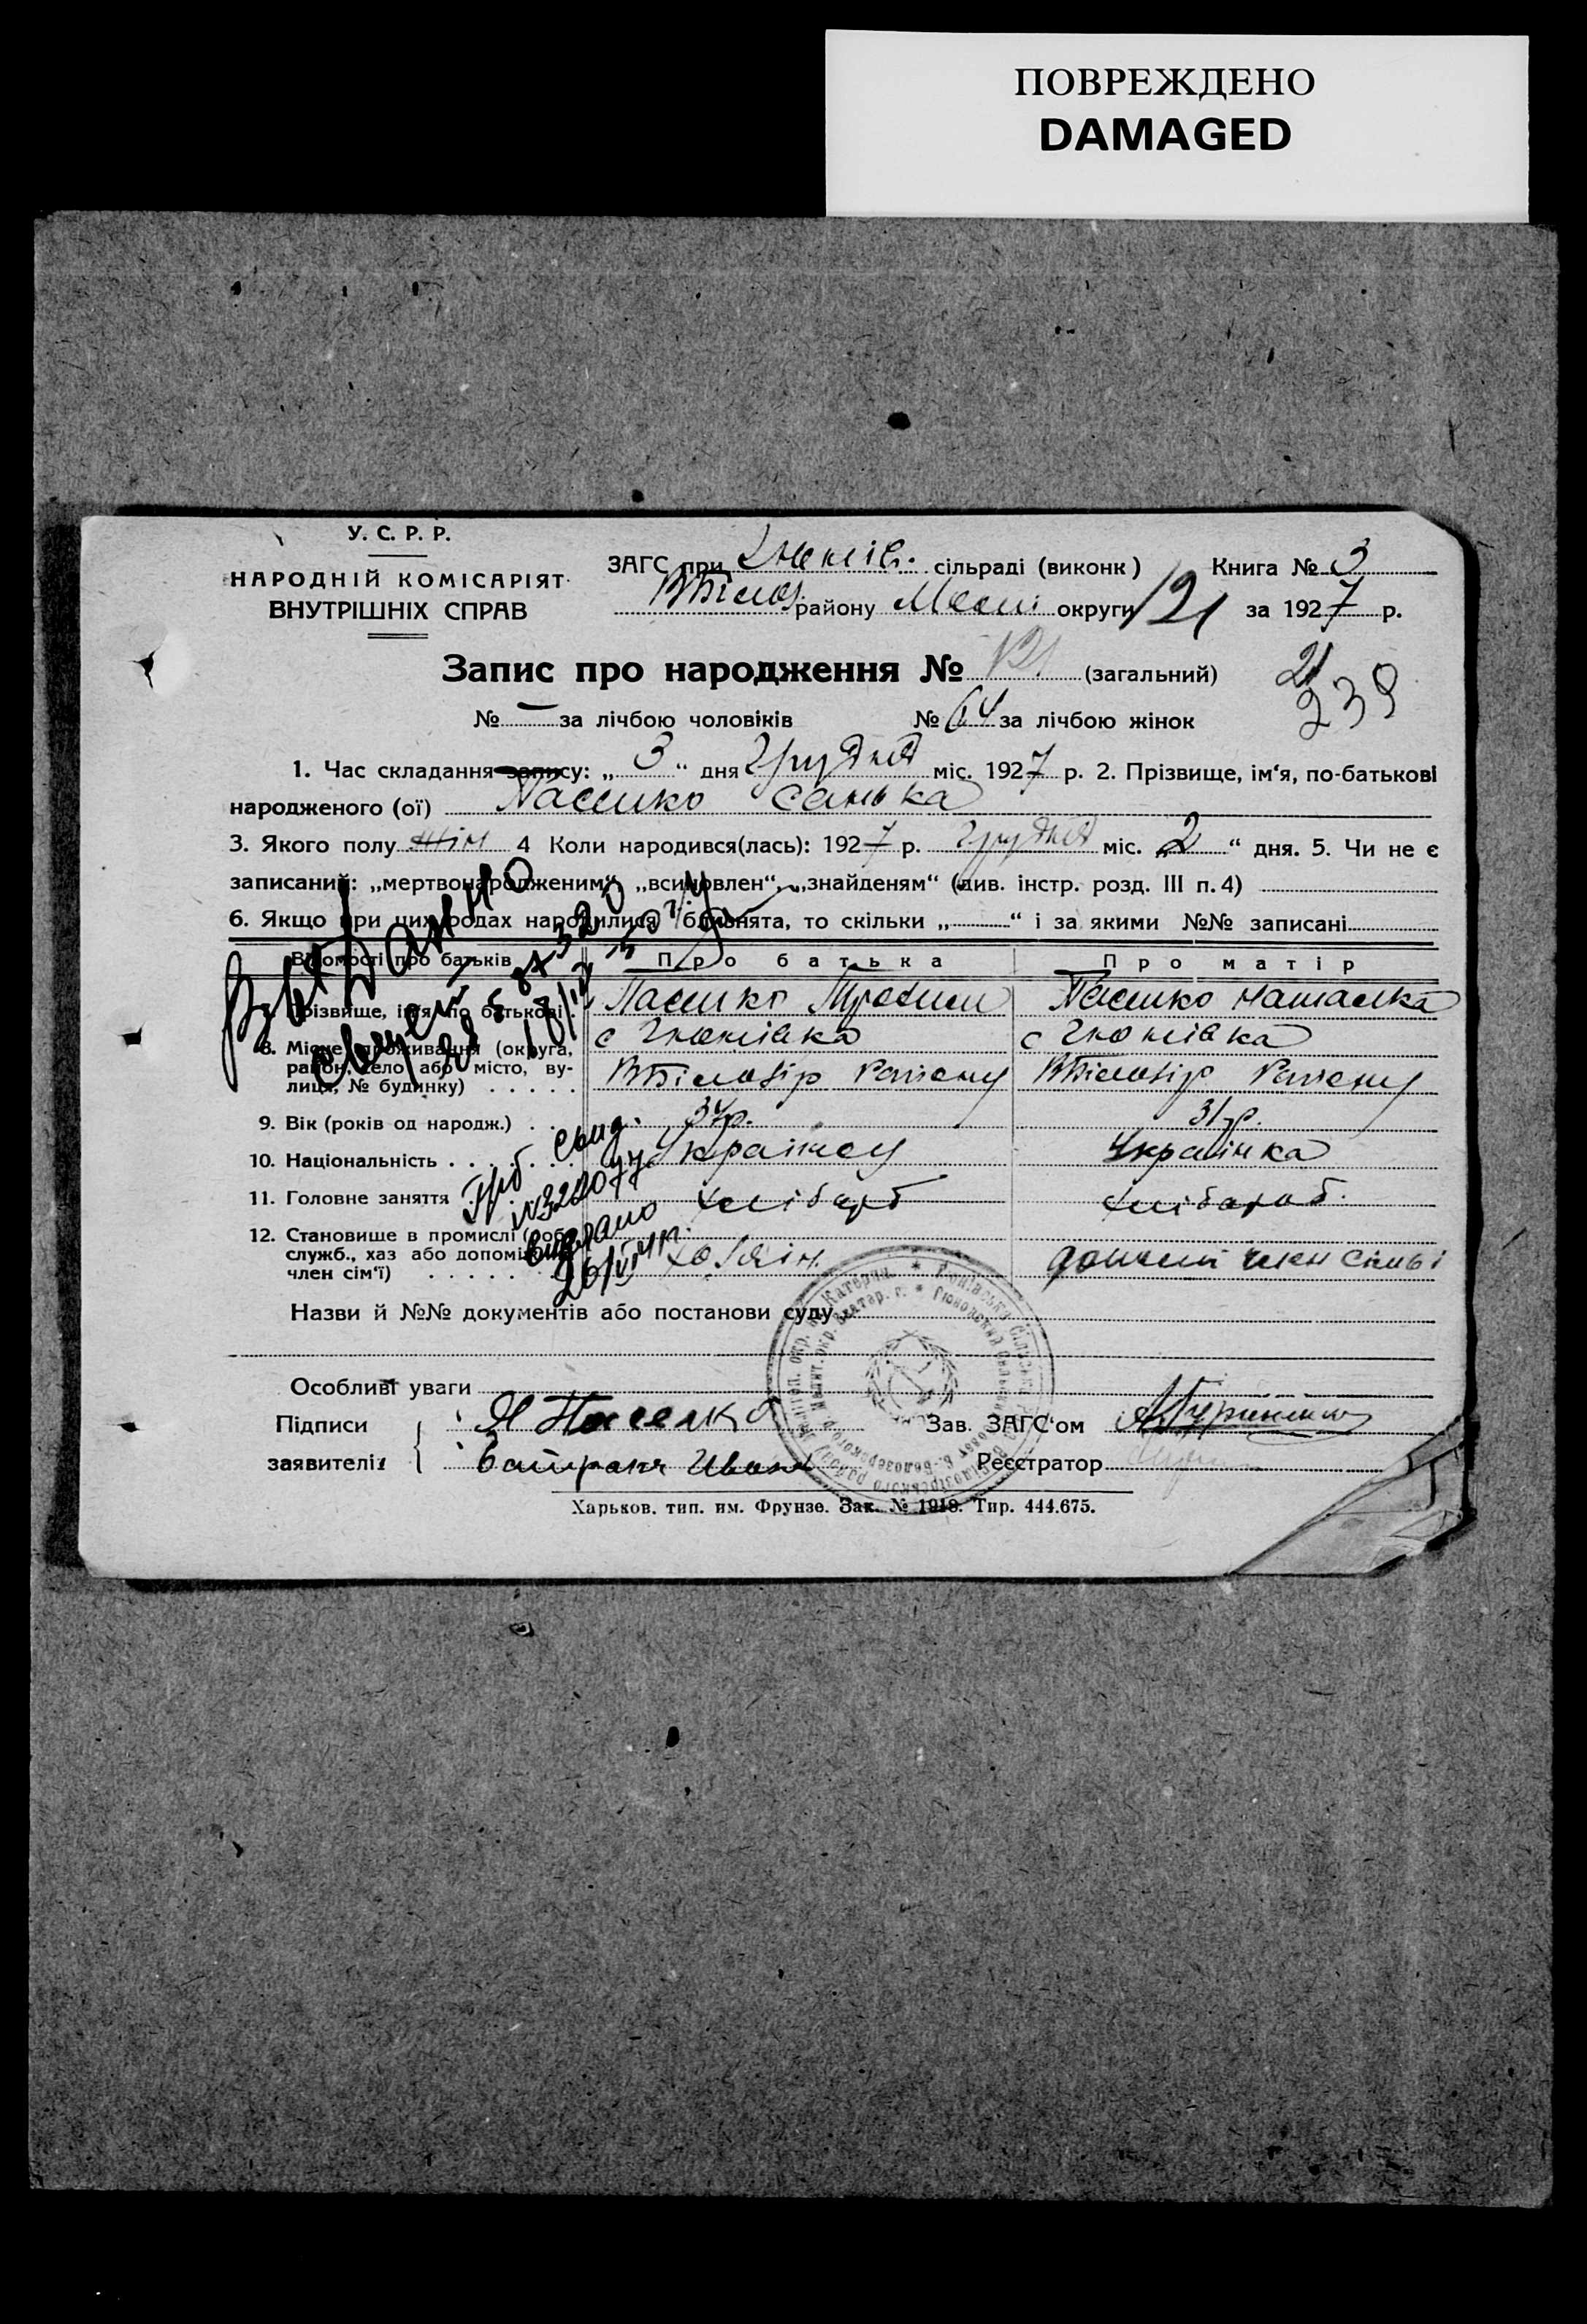 ПОВРЕЖДЕНО
DAMAGED
У. С. Р. Р.
НАРОДНІЙ КОМІСАРІЯТ
ВНУТРІШНІХ СПРАВ
ЗАГС при сільраді (виконк) Книга № 3
ВБілоз району Меліт округи 121 за 1927 р.
Запис про народження № 121 (загальний)
21
239
№ — за лічбою чоловіків № 64 за лічбою жінок
1. Час складання запису: „ 3 “ дня Грудня міс. 1927 р. 2. Прізвище, ім‘я, по-батькові
народженого (ої) санька
3. Якого полу жін 4 Коли народився(лась): 1927 р. грудня міс. „ 2 “ дня. 5. Чи не є
записаний: „мертвонародженим“, „всиновлен“, „знайденям“ (див. інстр. розд. III п. 4)
6. Якщо при цих родах народилися близнята, то скільки „ “ і за якими №№ записані
Відомості про батьків Про батька Про матір
7. Прізвище, ім‘я, по батькові Наталка
8. Місце проживання (округа, район, село або місто, вулиця, № будинку) с Гюнівка с Гюнівка
ВБілозір Району ВБілозір Району
9. Вік (років од народж.) 34р. 31р.
10. Національність Українец Українка
11. Головне заняття хлібороб хлібороб.
12. Становище в промислі (роб. служб., хаз або допоміжн. член сім‘ї) хозяін. допом член сімьі
Выдано
18/IV 50 г
свид.
№ 322077
выдано
Назви й №№ документів або постанови суду
Особливі уваги
Підписи
заявителів
Зав. ЗАГС‘ом
Иван
Реєстратор
Харьков. тип. им. Фрунзе. Зак. № 1918. Тир. 444.675.